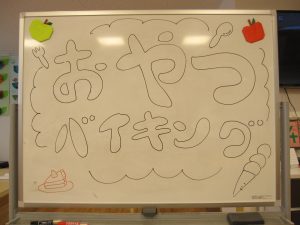 おやつ
バイキング